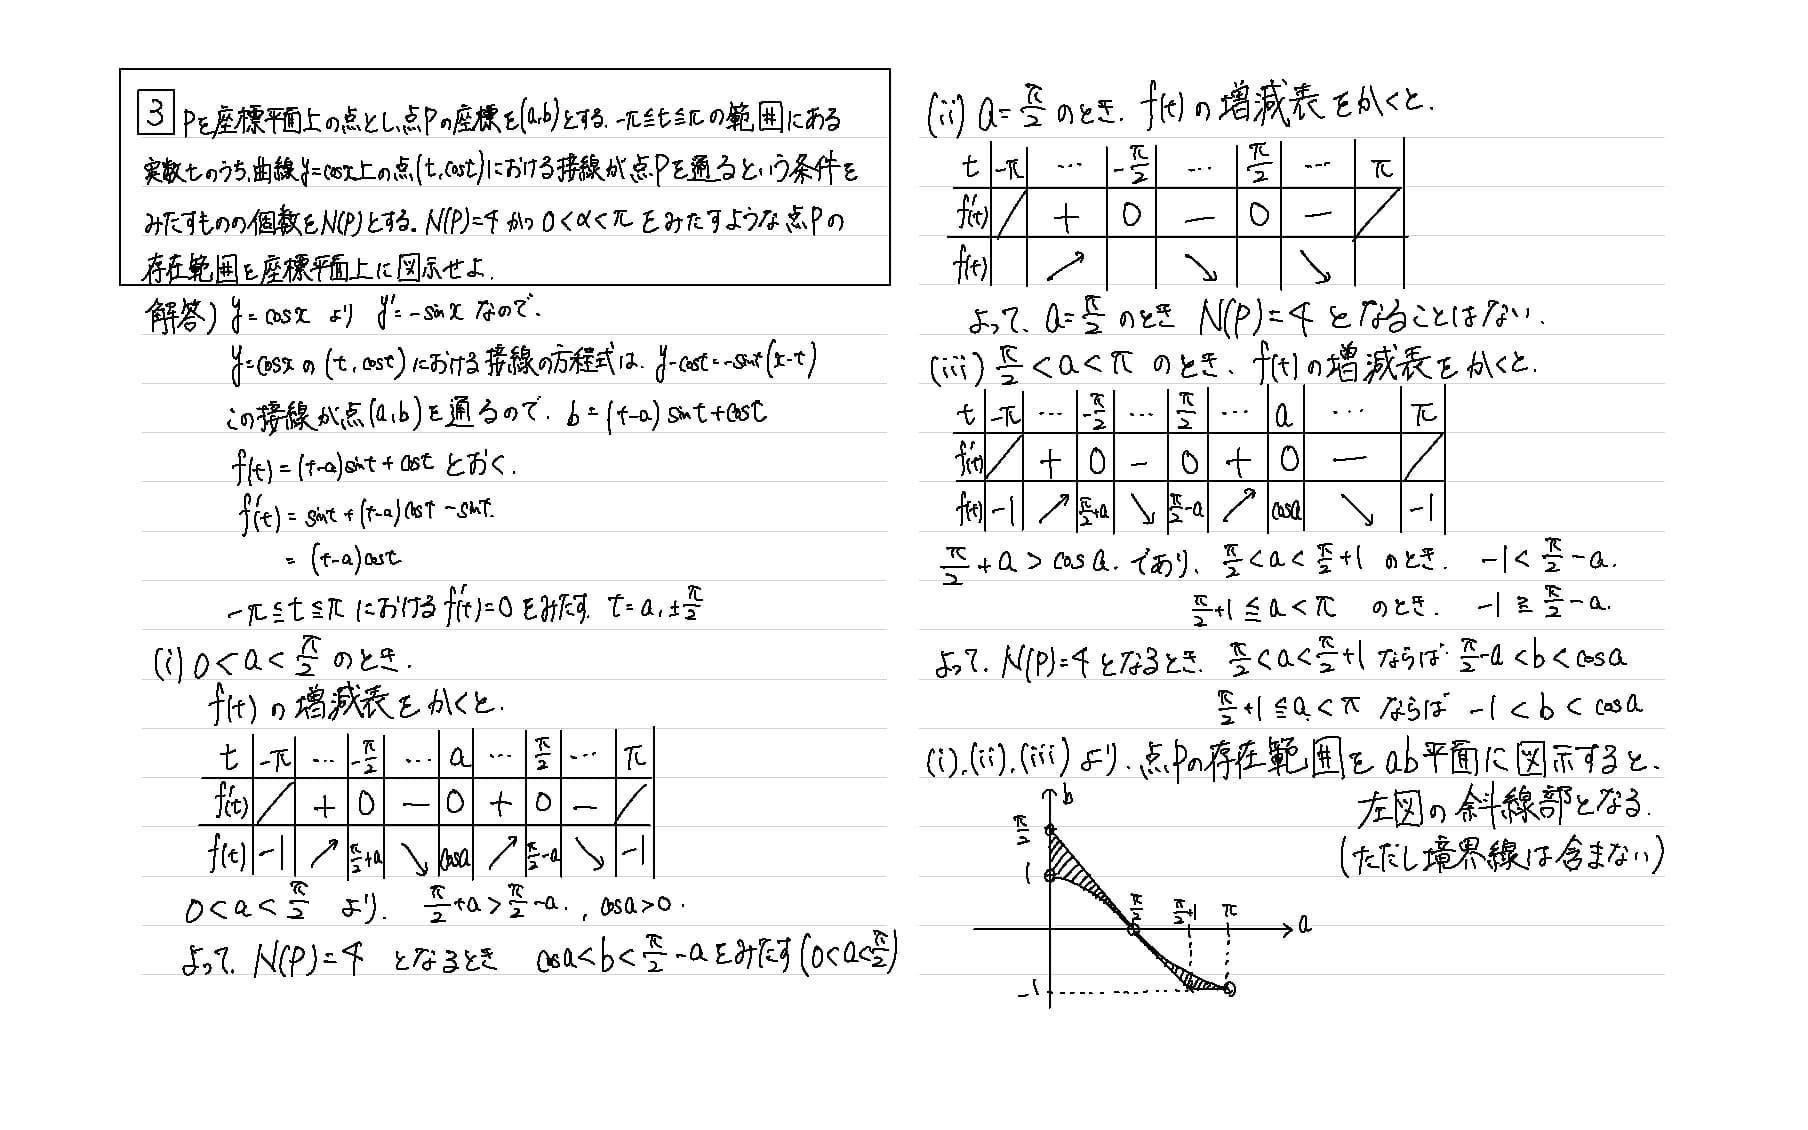 3 Pを座標平面上の点とし、点Pの座標を(a,b)とする。-π≦t≦πの範囲にある
実数tのうち、曲線y=cosx上の点(t,cost)における接線が点Pを通るという条件を
みたすものの個数をN(P)とする。N(P)=4かつ0<α<πをみたすような点Pの
存在範囲を座標平面上に図示せよ.
解答) y=cosx より y'=-sinx なので、
y=cosxの(t,cost)における接線の方程式は、y-cost=-sint(x-t)
この接線が点(a,b)を通るので、b=(t-a)sint+cost
f(t)=(t-a)sint+cost とおく.
f'(t)=sint+(t-a)cost-sint.
=(t-a)cost
-π≦t≦πにおけるf'(t)=0をみたす t=a,±π/2
(i) 0<a<π/2 のとき.
f(t)の増減表をかくと.
t -π … -π/2 … a … π/2 … π
f'(t) / + 0 - 0 + 0 - /
f(t) -1 ↗ π/2+a ↘ cosa ↗ π/2-a ↘ -1
0<a<π/2 より. π/2+a>π/2-a., cosa>0.
よって、N(P)=4 となるとき cosa<b<π/2-aをみたす(0<a<π/2)
(ii) a=π/2 のとき、f(t)の増減表をかくと.
t -π … -π/2 … π/2 … π
f'(t) / + 0 - 0 - /
f(t) ↗ ↘ ↘
よって、a=π/2 のとき N(P)=4 となることはない.
(iii) π/2<a<π のとき、f(t)の増減表をかくと.
t -π … -π/2 … π/2 … a … π
f'(t) / + 0 - 0 + 0 - /
f(t) -1 ↗ π/2+a ↘ π/2-a ↗ cosa ↘ -1
π/2+a>cosa.であり、π/2<a<π/2+1 のとき. -1<π/2-a.
π/2+1≦a<π のとき. -1≧π/2-a.
よって、N(P)=4となるとき、π/2<a<π/2+1ならば π/2-a<b<cosa
π/2+1≦a<π ならば -1<b<cosa
(i),(ii),(iii)より、点Pの存在範囲をab平面に図示すると、
左図の斜線部となる.
(ただし境界線は含まない)
b
π/2
1
π/2 π/2+1 π
a
-1